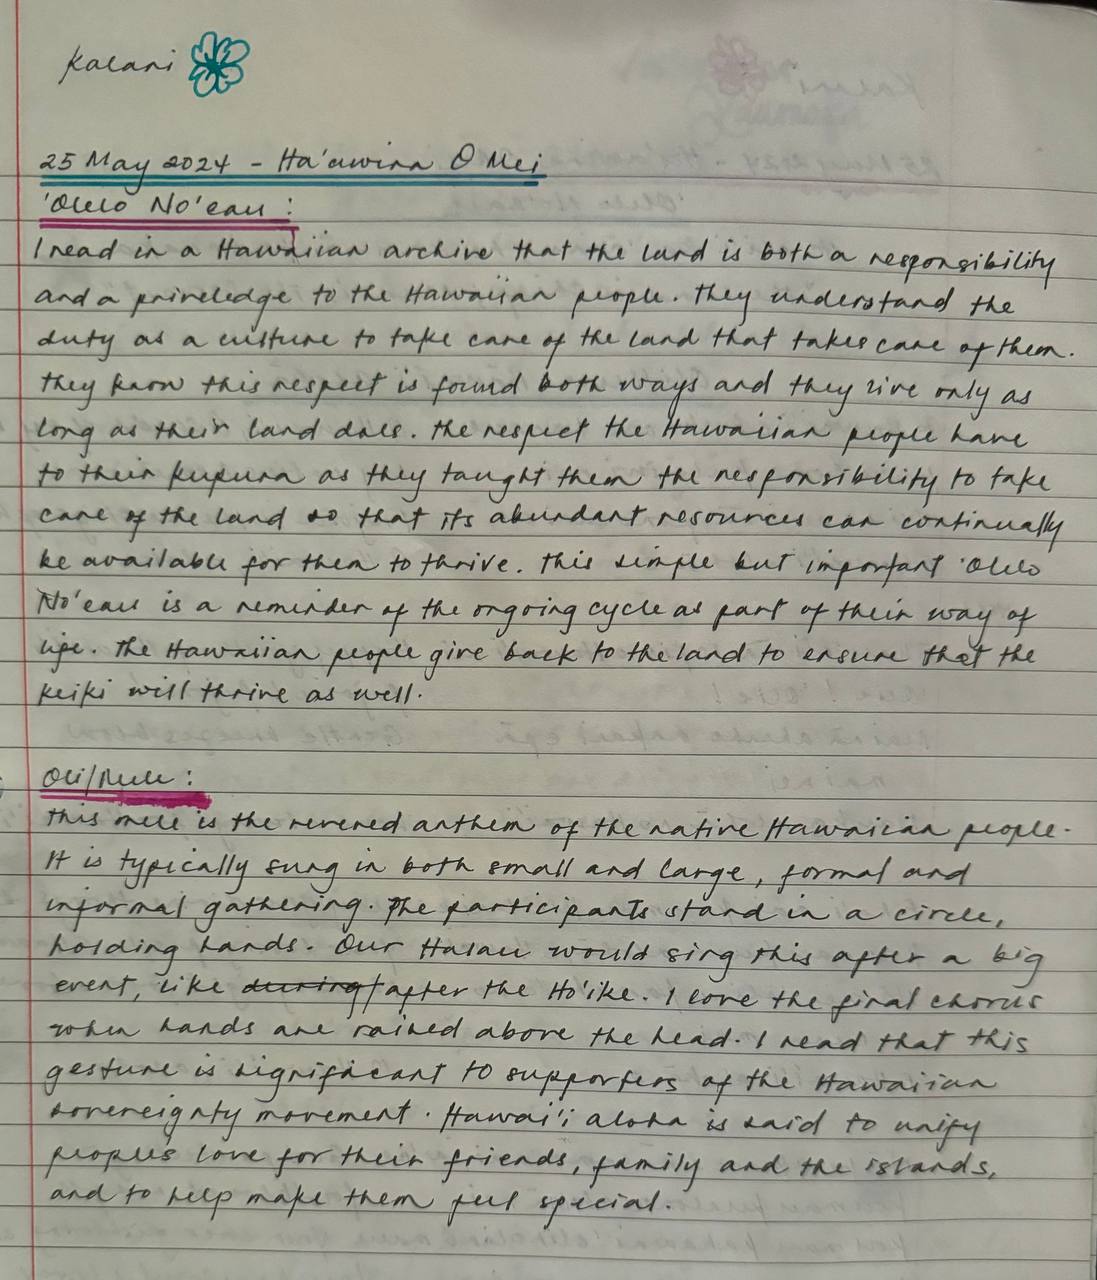 Kalani
25 May 2024 - Ha'awina O Mei
'Olelo No'eau :
I read in a Hawaiian archive that the land is both a responsibility
and a priveledge to the Hawaiian people. They understand the
duty as a culture to take care of the land that takes care of them.
They know this respect is found both ways and they live only as
long as their land does. The respect the Hawaiian people have
to their kupuna as they taught them the responsibility to take
care of the land so that its abundant resources can continually
be available for them to thrive. This simple but important 'Olelo
No'eau is a reminder of the ongoing cycle as part of their way of
life. The Hawaiian people give back to the land to ensure that the
keiki will thrive as well.
Oli/Mele :
This mele is the revered anthem of the native Hawaiian people.
It is typically sung in both small and large, formal and
informal gathering. The participants stand in a circle,
holding hands. Our Halau would sing this after a big
event, like during/after the Ho'ike. I love the final chorus
when hands are raised above the head. I read that this
gesture is significant to supporters of the Hawaiian
sovereignty movement. Hawai'i aloha is said to unify
peoples love for their friends, family and the islands,
and to help make them feel special.